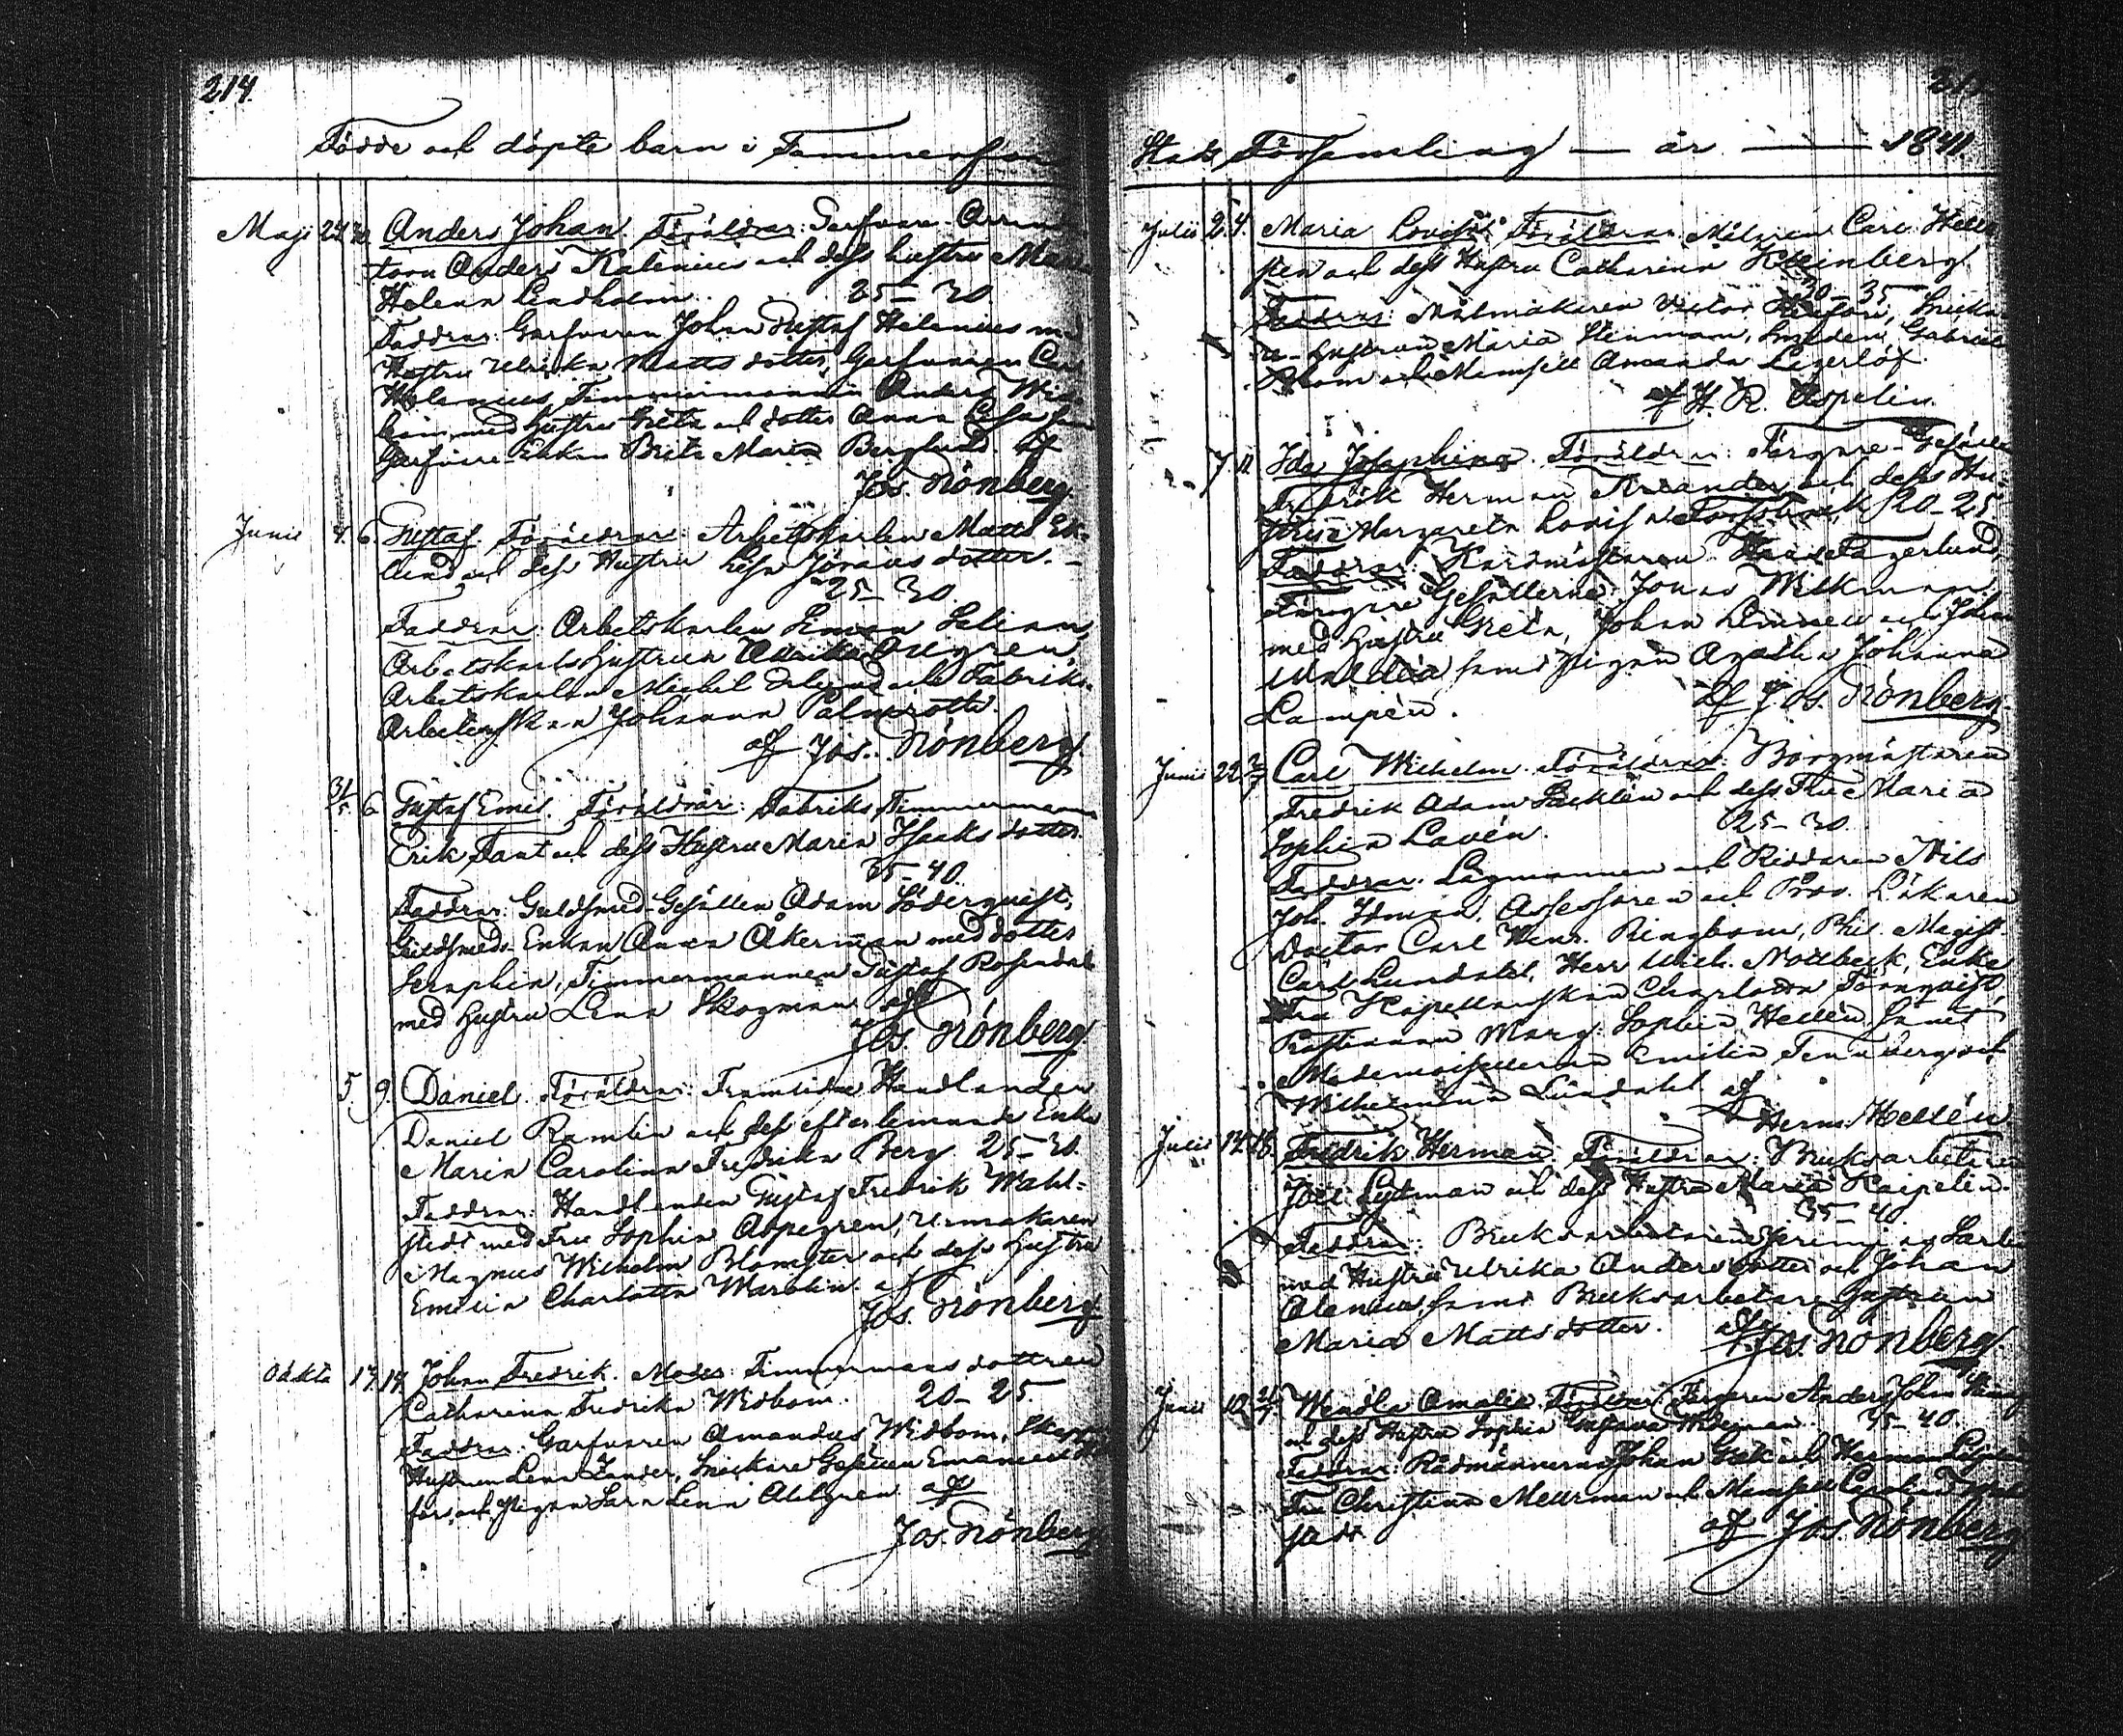 214.
Födde och döpte barn i Tammerfors
Maji 24. 30. Anders Johan. Föräldrar: Garfvare
Anders Kalenius och dess hustru Maria
Helena Lindholm. 25-30
Faddrar: Garfvaren Johan Gustaf Helenius med
Hustru Ulrika Mattsdotter, Garfvaren Carl
Helenius, Timmermannen Anders
med Hustru Greta och dotter Anna Lisa samt
Garfvare-Enkan Brita Maria Berglund. af
Jos. Grönberg.
Junii 4. 6. Gustaf. Föräldrar: Arbetskarlen Matts Ek-
lund och dess Hustru Lisa Jöransdotter.
25-30.
Faddrar: Arbetskarlen Simon Selin,
Arbetskarls Hustrun Ulrika
Arbetskarlen Michel och Fabriks-
Arbeterskan Johanna Palmroth.
af Jos. Grönberg.
31/5 6 Gustaf Emil. Föräldrar: Fabriks Timmermannen
Erik Tant och dess Hustru Maria Isaksdotter.
35-40.
Faddrar: Guldsmed-Gesällen Adam Söderquist,
Guldsmeds-Enkan Anna Åkerman med dotter
Seraphia, Timmermannen Gustaf Rosendal
med Hustru Lena Skogman af
Jos. Grönberg.
5. 9. Daniel. Föräldrar: Framlidne Handlanden
Daniel Ramlin och dess efterlemnande Enka
Maria Carolina Fredrika Berg 25-30.
Faddrar: Handlanden Gustaf Fredrik Wahl-
stedt med Fru Sophia Aspegren, Urmakaren
Magnus Wilhelm Blomster och dess Hustru
Emilia Charlotta af
Jos. Grönberg.
Oäkta 17. 19. Johan Fredrik. Moder: Timmermansdottren
Catharina Fredrika Widbom. 20-25.
Faddrar: Garfvaren Amandus Widbom,
Hustrun Lena Zander, Snickare Gesällen Emanuel
fors, och Pigan Sara Lena Ahlgren af
Jos. Grönberg
Stads Församling — år — 1841.
Julii 2. 4. Maria Lovisa. Föräldrar: Carl
och dess Hustru Catharina Kleinberg
30-35
Faddrar: Målmakaren Victor
Hustrun Maria Stenman, Smeden Gabriel
Blom och Mamsell Amanda Lagerlöf.
af H. R. Aspelin.
7. 11. Ida Josephina. Föräldrar: Färgare-Gesällen
Fredrik Herman och dess Hu-
stru Margareta Lovisa 20-25
Faddrar: Kardmästaren Fagerlund,
Färgare Gesällerne Jonas Wilkman
med Hustru Greta, Johan och Johan
samt Pigan Agatha Johanna
Lampén. af Jos. Grönberg.
Junii 22. 3/7 Carl Wilhelm. Föräldrar: Borgmästaren
Fredrik Adam Säcklén och dess Fru Maria
Sophia Lavén. 25-30.
Faddrar: Lagmannen och Riddaren Nils
Joh. Idman, Assessoren och Prov. Läkaren
Doctor Carl Wenr. Ringbom, Phil. Magist.
Carl Lundahl, Herr Wilh. Nottbeck, Enke
Fru Kapellanskan Charlotta Törnquist,
Prostinnan Marg: Sophia Hellén samt
Mademoisellerna Emilia Tennberg och
Wilhelmina Lundahl af
Herm: Hellén
Julii 14. 18. Fredrik Herman. Föräldrar: Bruksarbetaren
Joel Lydman och dess Hustru Maria Kaipelin.
35-40.
Faddrar: Bruksarbetaren Jeremias
med Hustru Ulrika Andersdotter och Johan
Alenius, samt Bruksarbetare Hustrun
Maria Mattsdotter. af Jos. Grönberg.
Junii 10. Wendla Amalia. Föräldrar: Färgaren Anders Johan
och dess Hustru Sophia Gustava Wideman. 35-40.
Faddrar: Rådmännerna Johan och Herman
Fru Christina Meurman och Mamsell Carolina
stedt af Jos. Grönberg